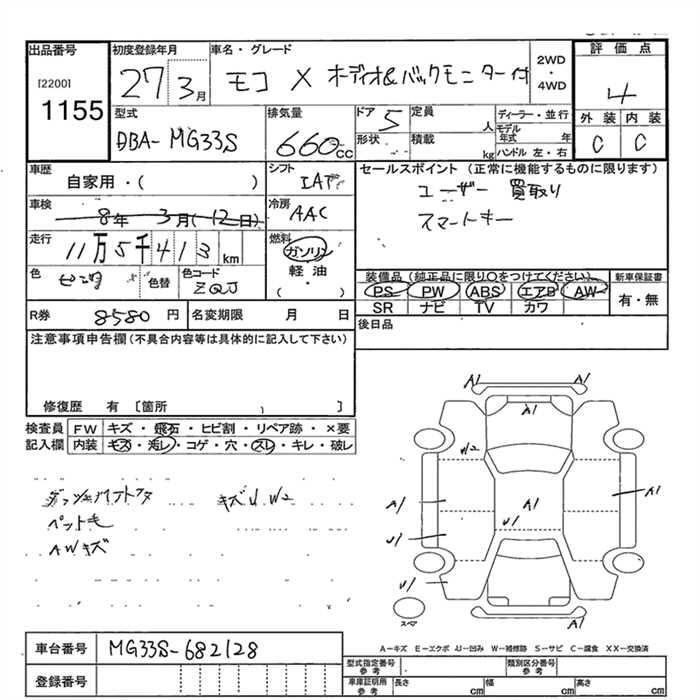 出品番号 初度登録年月 車名・グレード 2WD・4WD 評価点
[2200] 1155
27 3月 モコ X オーディオ&バックモニター付 4
型式 排気量 ドア 5 定員 人 ディーラー・並行 外装 内装
DBA-MG33S 660cc 形状 積載 kg モデル年式 年 ハンドル 左・右 C C
車歴 シフト セールスポイント (正常に機能するものに限ります)
自家用・( ) IAT ユーザー 買取り
車検 冷房 スマートキー
8年 3月(12日) AAC
走行 燃料
11万5千413km ガソリン
色 色替 色コード 軽油 装備品 (純正品に限り○をつけてください) 新車保証書
ZQJ ・( ) PS PW ABS エアB AW 有・無
SR ナビ TV カワ
R券 8580円 名変期限 月 日 後日品
注意事項申告欄(不具合内容等は具体的に記入して下さい)
修復歴 有 [箇所 ]
検査員 FW キズ・飛石・ヒビ割・リペア跡・×要
記入欄 内装 キズ・汚レ・コゲ・穴・スレ・キレ・破レ
キズU W2
ペット毛
AWキズ
A1 A1
A1
W2
A1 A1 A1
U1
U1
U1
スペア
A1
車台番号 MG33S-682128
A−キズ E−エクボ U−凹み W−補修跡 S−サビ C−腐食 XX−交換済
登録番号
型式指定番号 参考 類別区分番号 参考
車庫証明用 参考 長さ cm 幅 cm 高さ cm